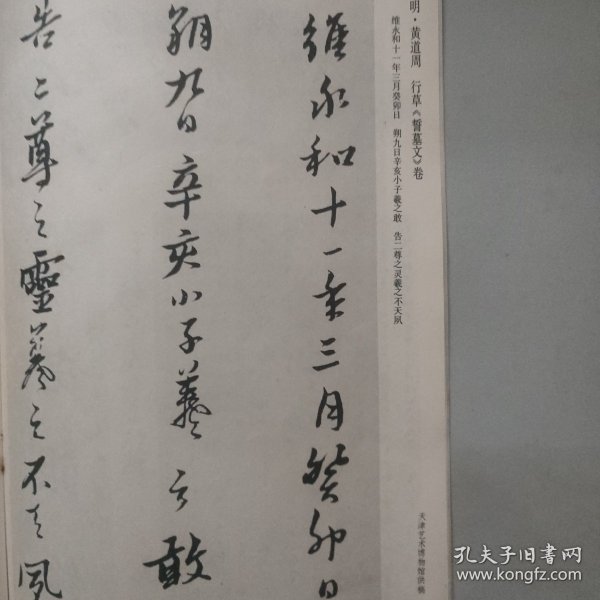 明·黄道周 行草《誓墓文》卷
维永和十一年三月癸卯日 朔九日辛亥小子羲之敢 告二尊之灵羲之不天夙
維永和十一年三月癸卯日
朔九日辛亥小子羲之敢
告二尊之靈羲之不天夙
天津艺术博物馆供稿
孔夫子旧书网
www.kongfz.com